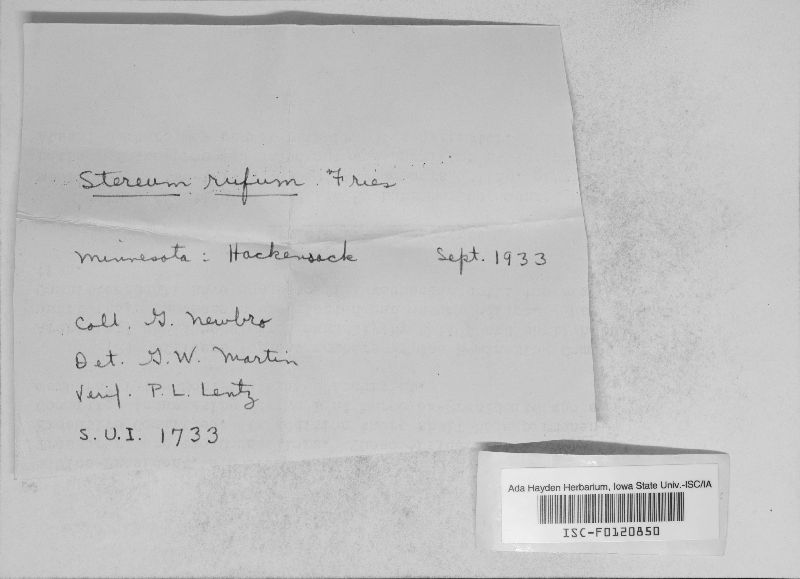 Stereum rufum Fries
Minnesota: Hackensack Sept. 1933
Coll. G. Newbro
Det. G.W. Martin
Verif. P.L. Lentz
S.U.I. 1733
Ada Hayden Herbarium, Iowa State Univ.-ISC/IA
ISC-F0120850